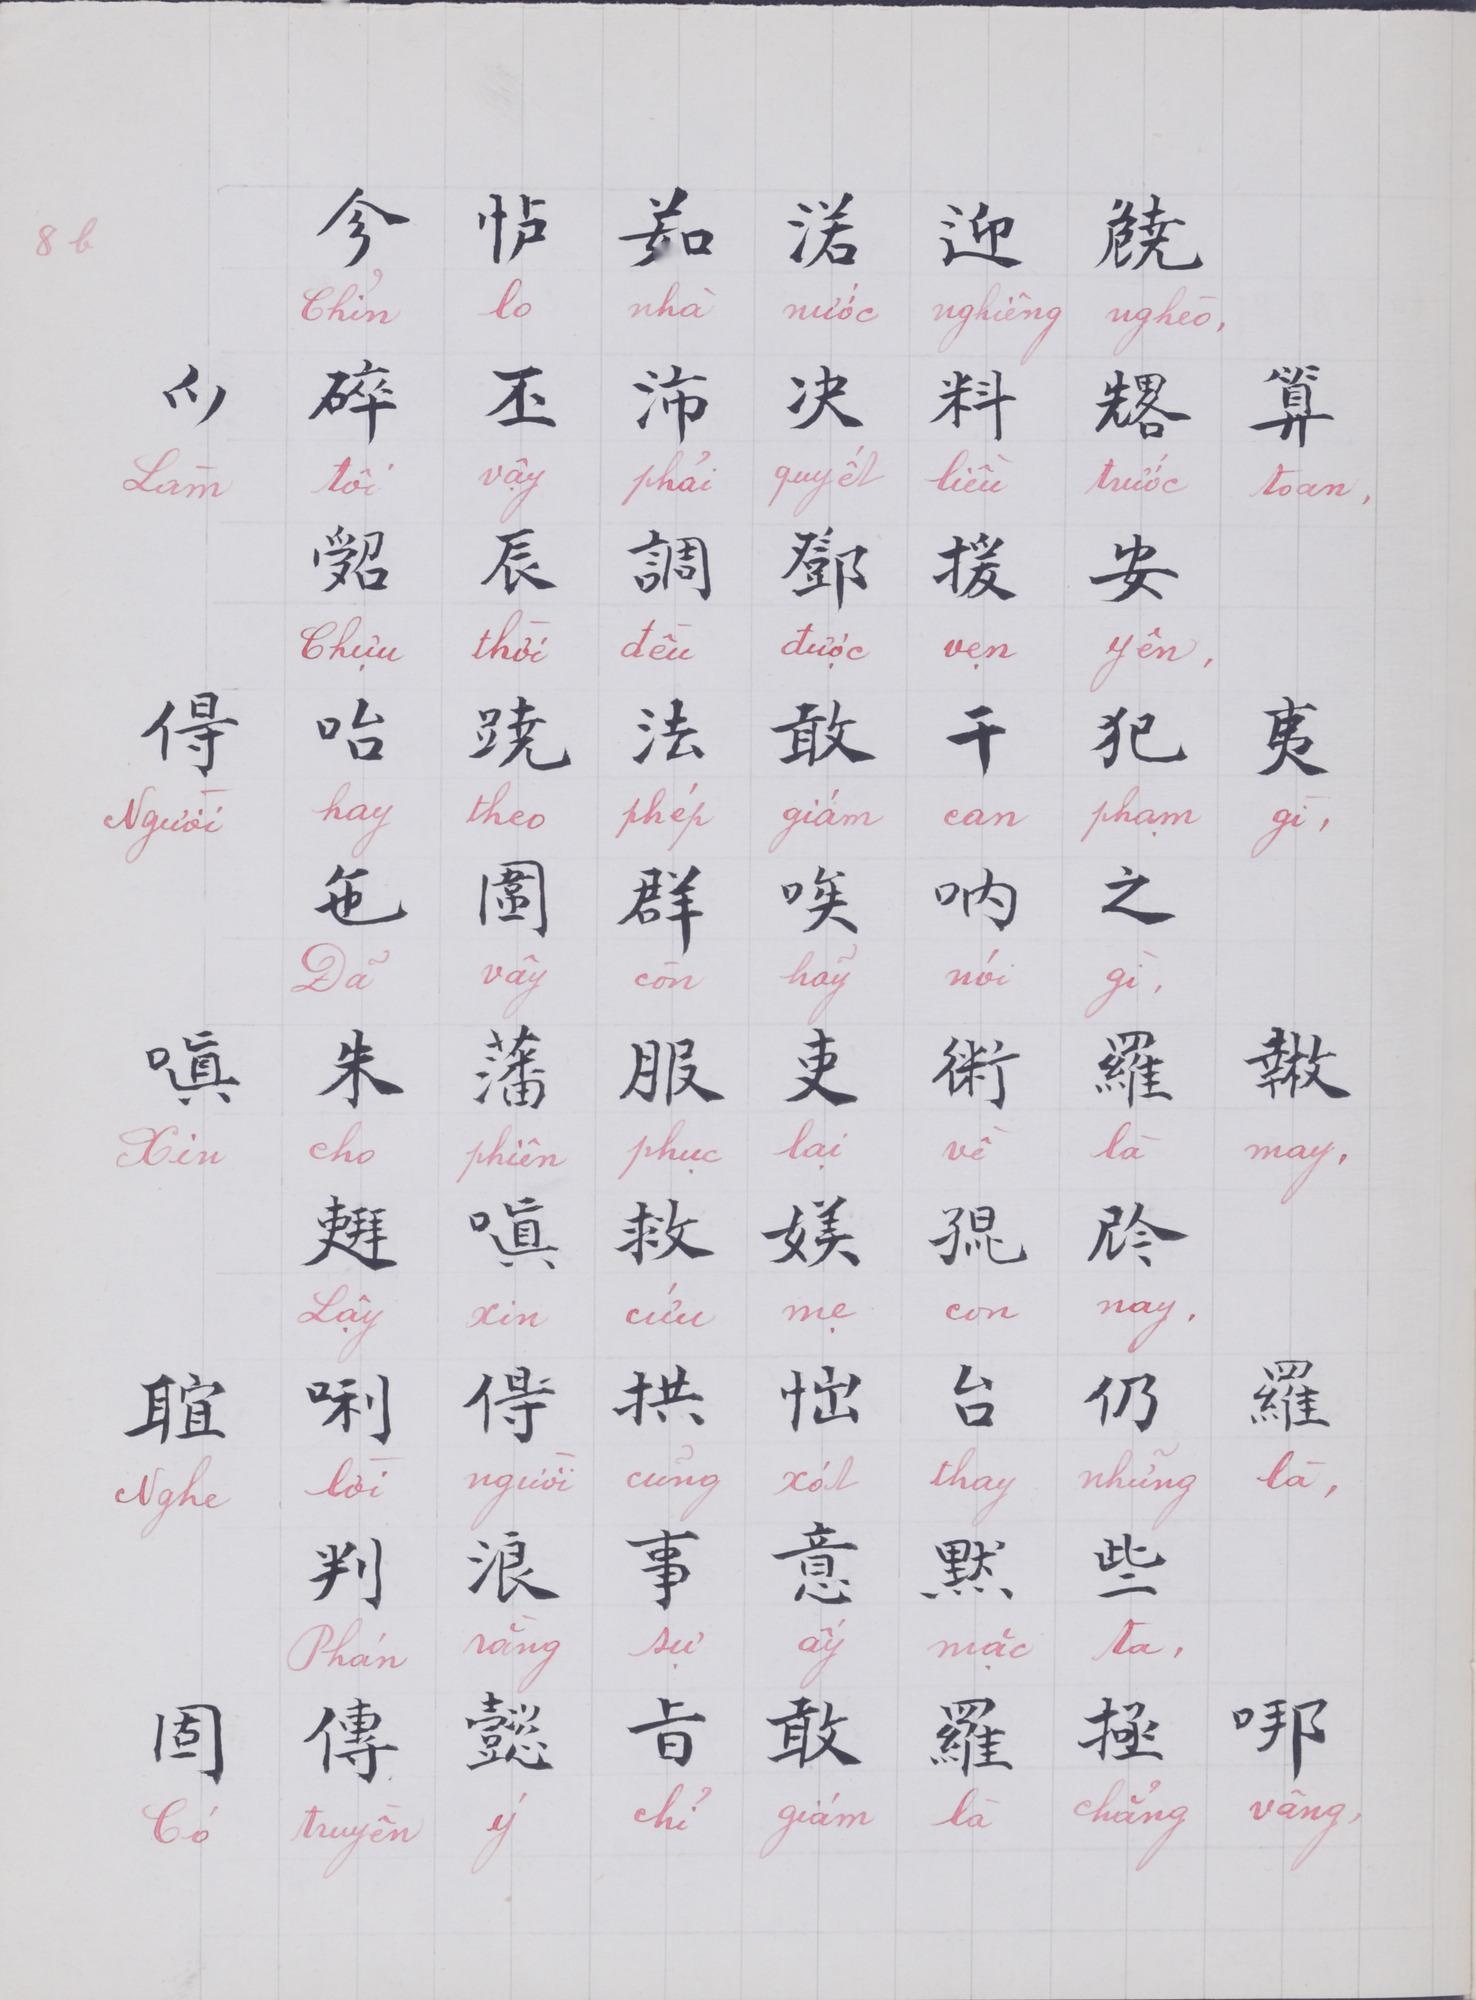 8b
𫢩 𢗼 茹 渃 迎 𩛸
Chỉn lo nhà nước nghiêng nghèo,
碎 丕 沛 决 料 𠓀 算
Làm tôi vậy phải quyết liều trước toan,
𠹾 辰 調 鄧 援 安
Chựu thời đều được vẹn yên,
𠊛 咍 蹺 法 敢 干 犯 夷
Người hay theo phép giám can phạm gì,
㐌 圍 群 唉 吶 之
Dã vây còn hãy nói gì,
嗔 朱 藩 服 吏 術 羅 𢆧
Xin cho phiên phục lại về là may,
𥛉 嗔 救 媄 𡥵 𫢩
Lậy xin cứu mẹ con nay,
𦖑 唎 𠊛 拱 㤕 台 仍 羅
Nghe lời người cũng xót thay những là,
判 浪 事 意 默 些
Phán rằng sự ấy mặc ta,
固 傳 懿 旨 敢 羅 拯 㖫
Có truyền ý chỉ giám là chẳng vâng,